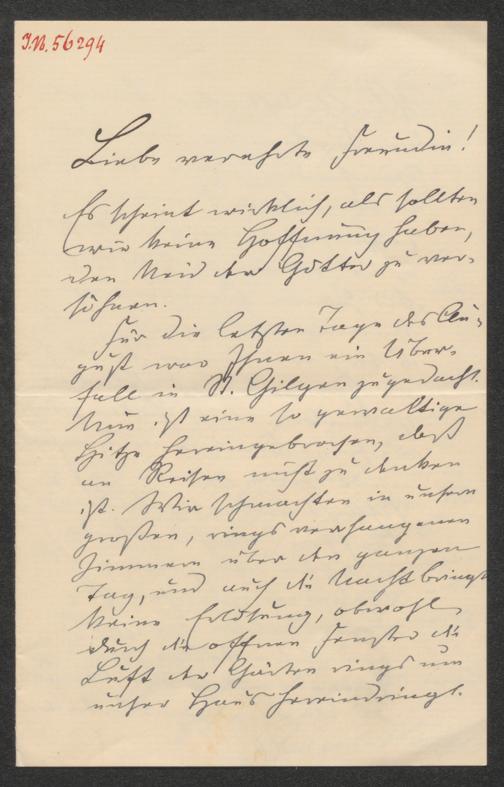 I.N. 56294
Liebe verehrte Freundin!
Es scheint wirklich, als sollten
wir keine Hoffnung haben,
den Neid der Götter zu ver-
söhnen.
Für die letzten Tage des Au-
gust war Ihnen ein Über-
fall in St. Gilgen zugedacht.
Nun ist eine so gewaltige
Hitze hereingebrochen, daß
an Reisen nicht zu denken
ist. Wir schmachten in unsern
großen, rings verhangenen
Zimmern über den ganzen
Tag, und auch die Nacht bringt
keine Erlösung, obwohl
durch die offnen Fenster die
Luft der Gärten rings um
unser Haus hereindringt.